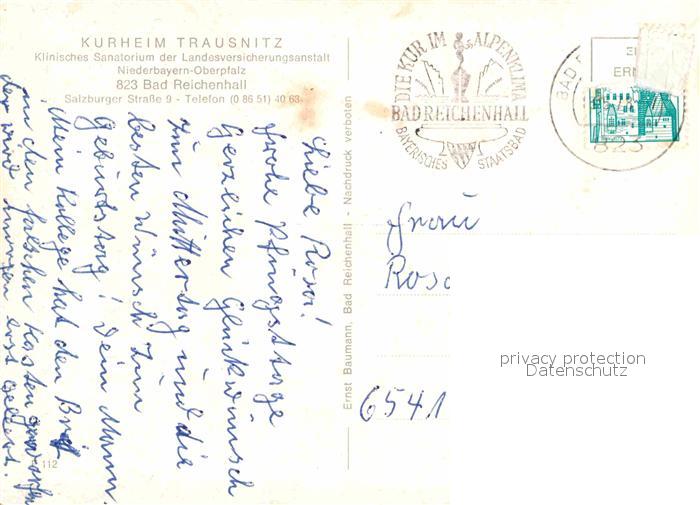 KURHEIM TRAUSNITZ
Klinisches Sanatorium der Landesversicherungsanstalt
Niederbayern-Oberpfalz
823 Bad Reichenhall
Salzburger Straße 9 - Telefon (0 86 51) 40 63
DIE KUR IM ALPENKLIMA
BAD REICHENHALL
BAYERISCHES STAATSBAD
BAD
823
Liebe Rosa!
Frohe Pfingsttage
Herzlichen Glückwünsch
zum Müttertag und die
besten Wünsch zum
Gebürtstag! Dein Mann.
Mein Kollege hat den Brief
in den falschen Kasten geworfen
der wird morgen erst geleert.
Ernst Baumann, Bad Reichenhall - Nachdruck verboten
Frau
Rosa
6541
112
privacy protection
Datenschutz